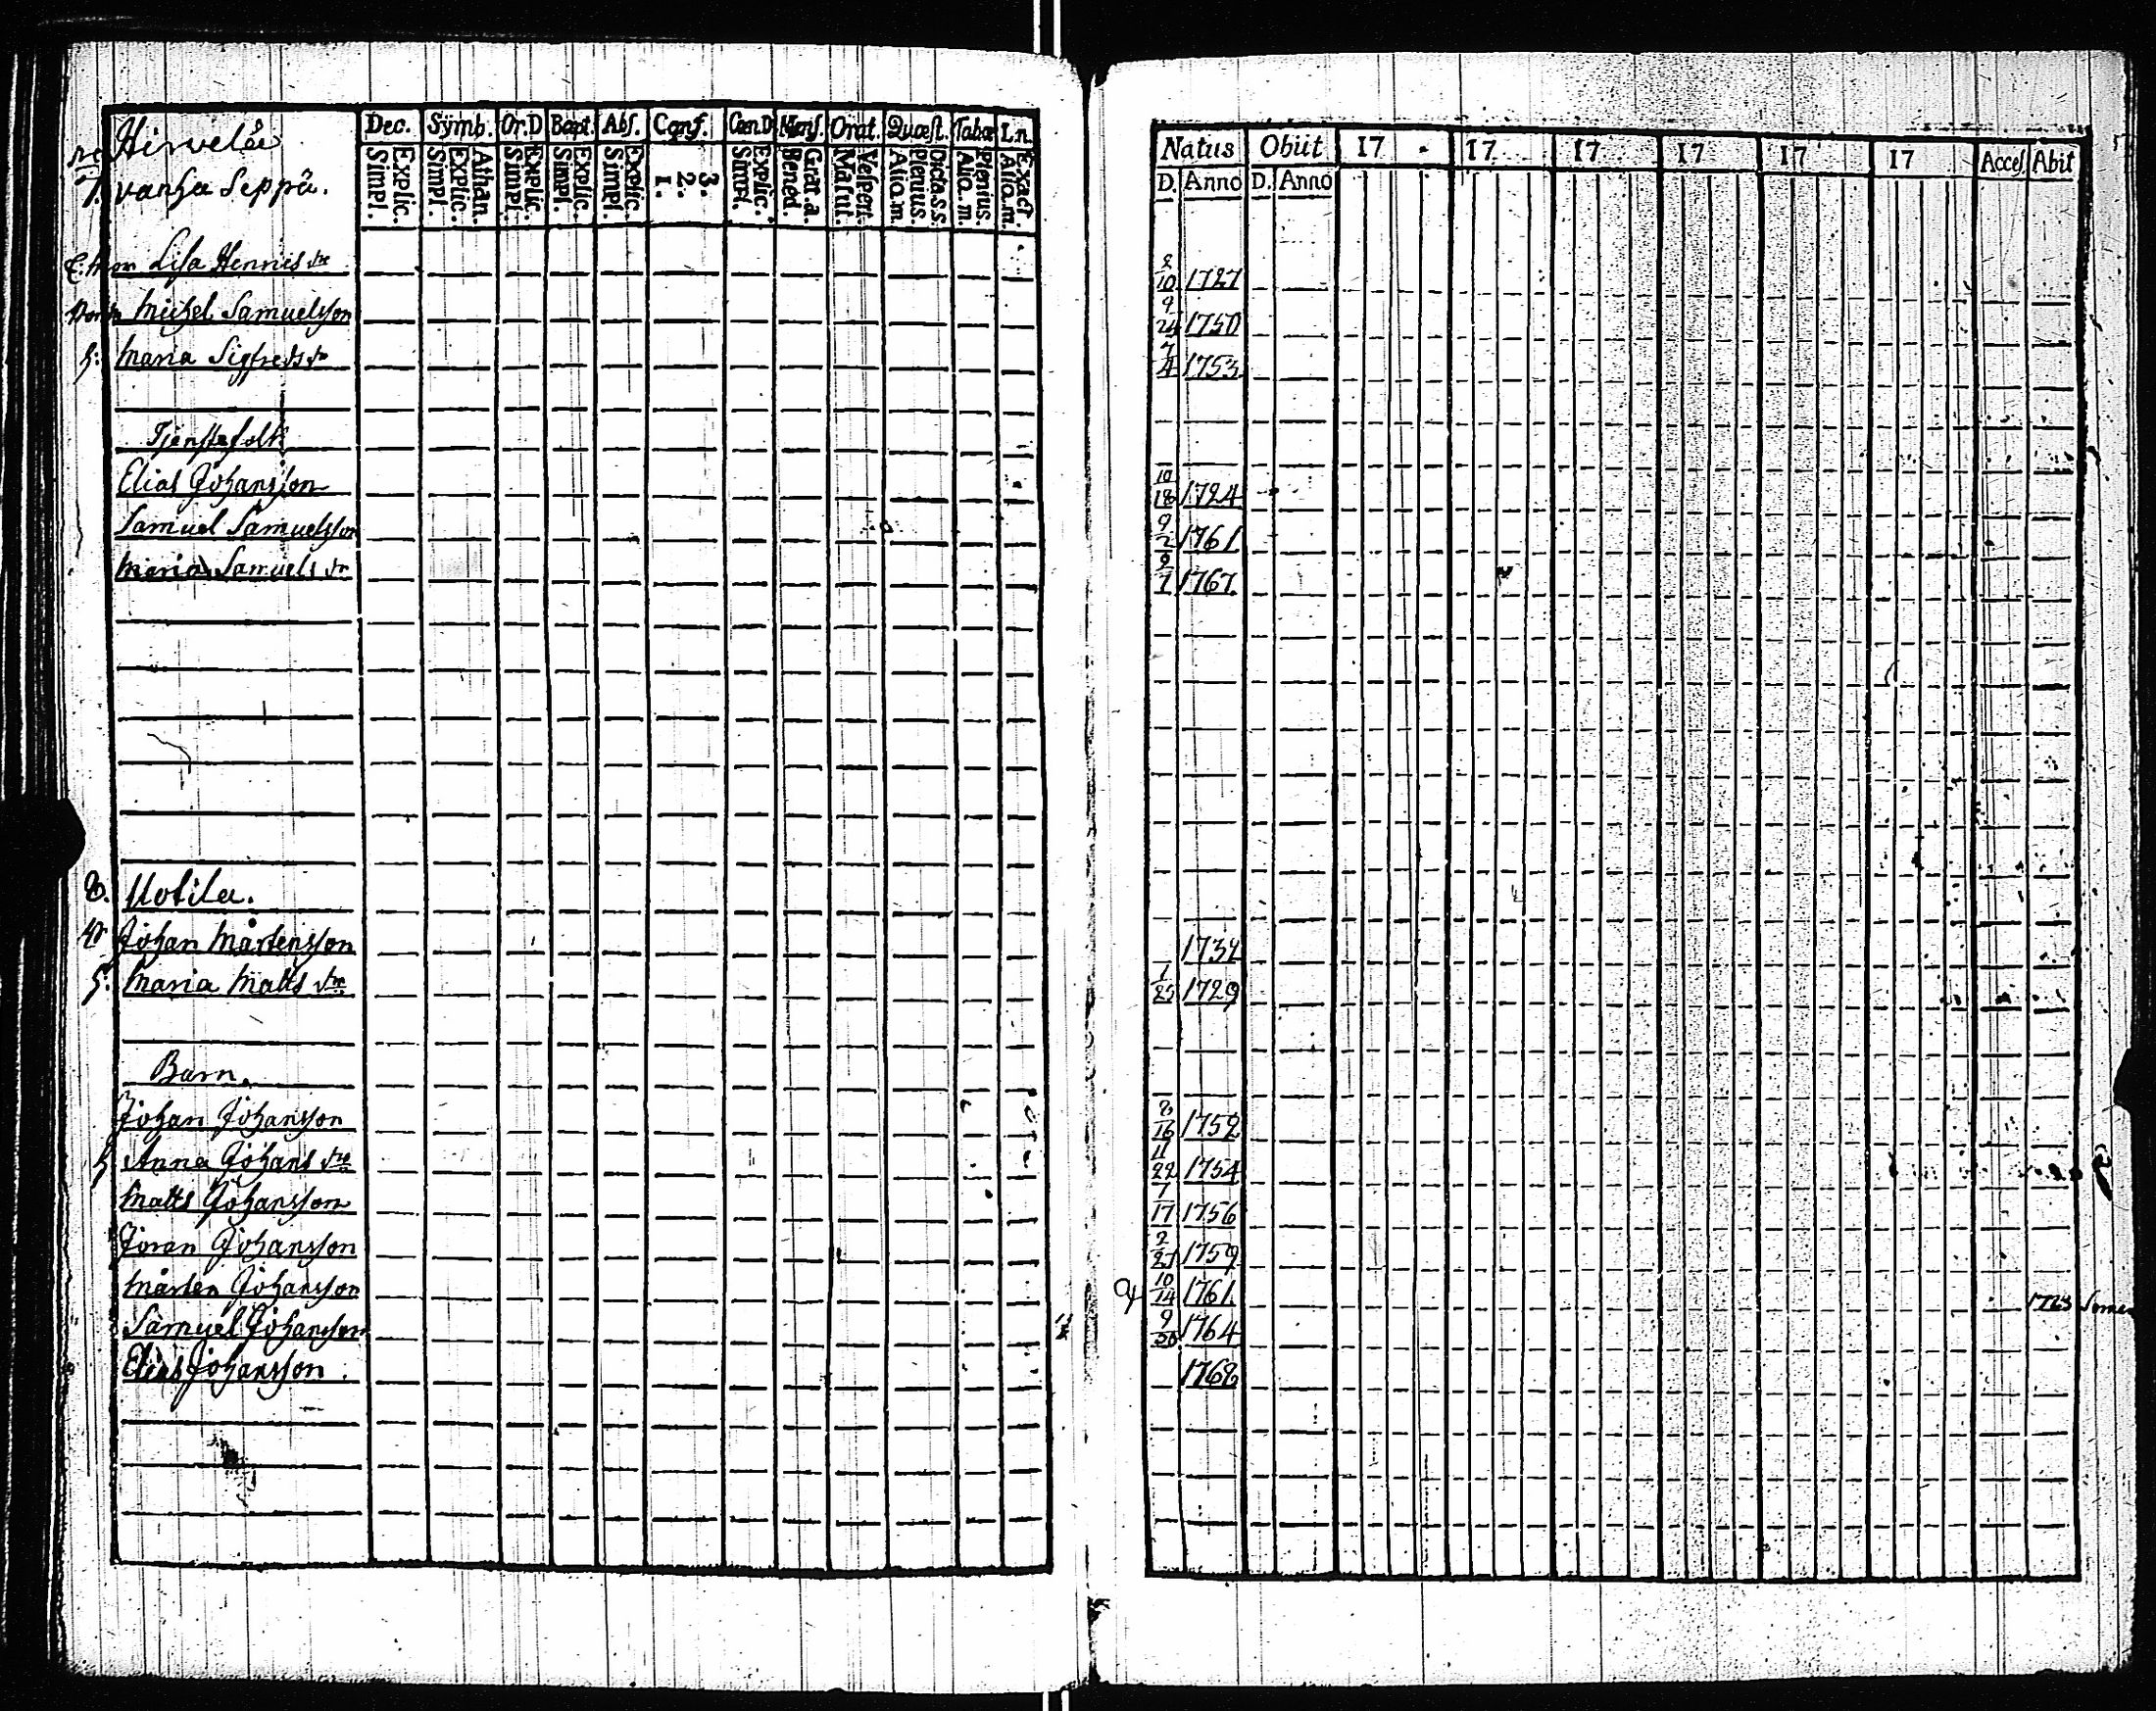 Dec. Symb. Or.D Bapt. Abs. Conf. Cœn.D Mens. Orat. Quæst. Tabæ I.n.
Simpl. Explic. Simpl. Explic. Athan. Simpl. Explic. Simpl. Explic. Simpl. Explic. 1. 2. 3. Simpl. Explic. Bened. Grat.a. Matut. Vespert. Alio.m. Plenius. Dicta.s.s. Alio.m. Plenius. Alio.m. Exact.
Natus Obiit 17 17 17 17 17 17 Acces. Abit
D. Anno D. Anno
Hirvelä
7. vanha Seppä.
Lisa Hennis dr 8/10 1727
Michel Samuelsson 9/24 1750
h: Maria Sigfreds dr 7/4 1753
Tjenstefolk
Elias Johansson 10/18 1724
Samuel Samuelsson 9/2 1761
Maria Samuels dr 1767
8. Uotila.
Johan Mårtensson 1732
h. Maria Matts dr 1/25 1729
Barn.
Johan Johansson 1752
h Anna Johans dr 11/22 1754
Matts Johansson 7/17 1756
Jöran Johansson 1759
Mårten Johansson 10/14 1761
Samuel Johansson 9/30 1764
Elias Johansson. 1768